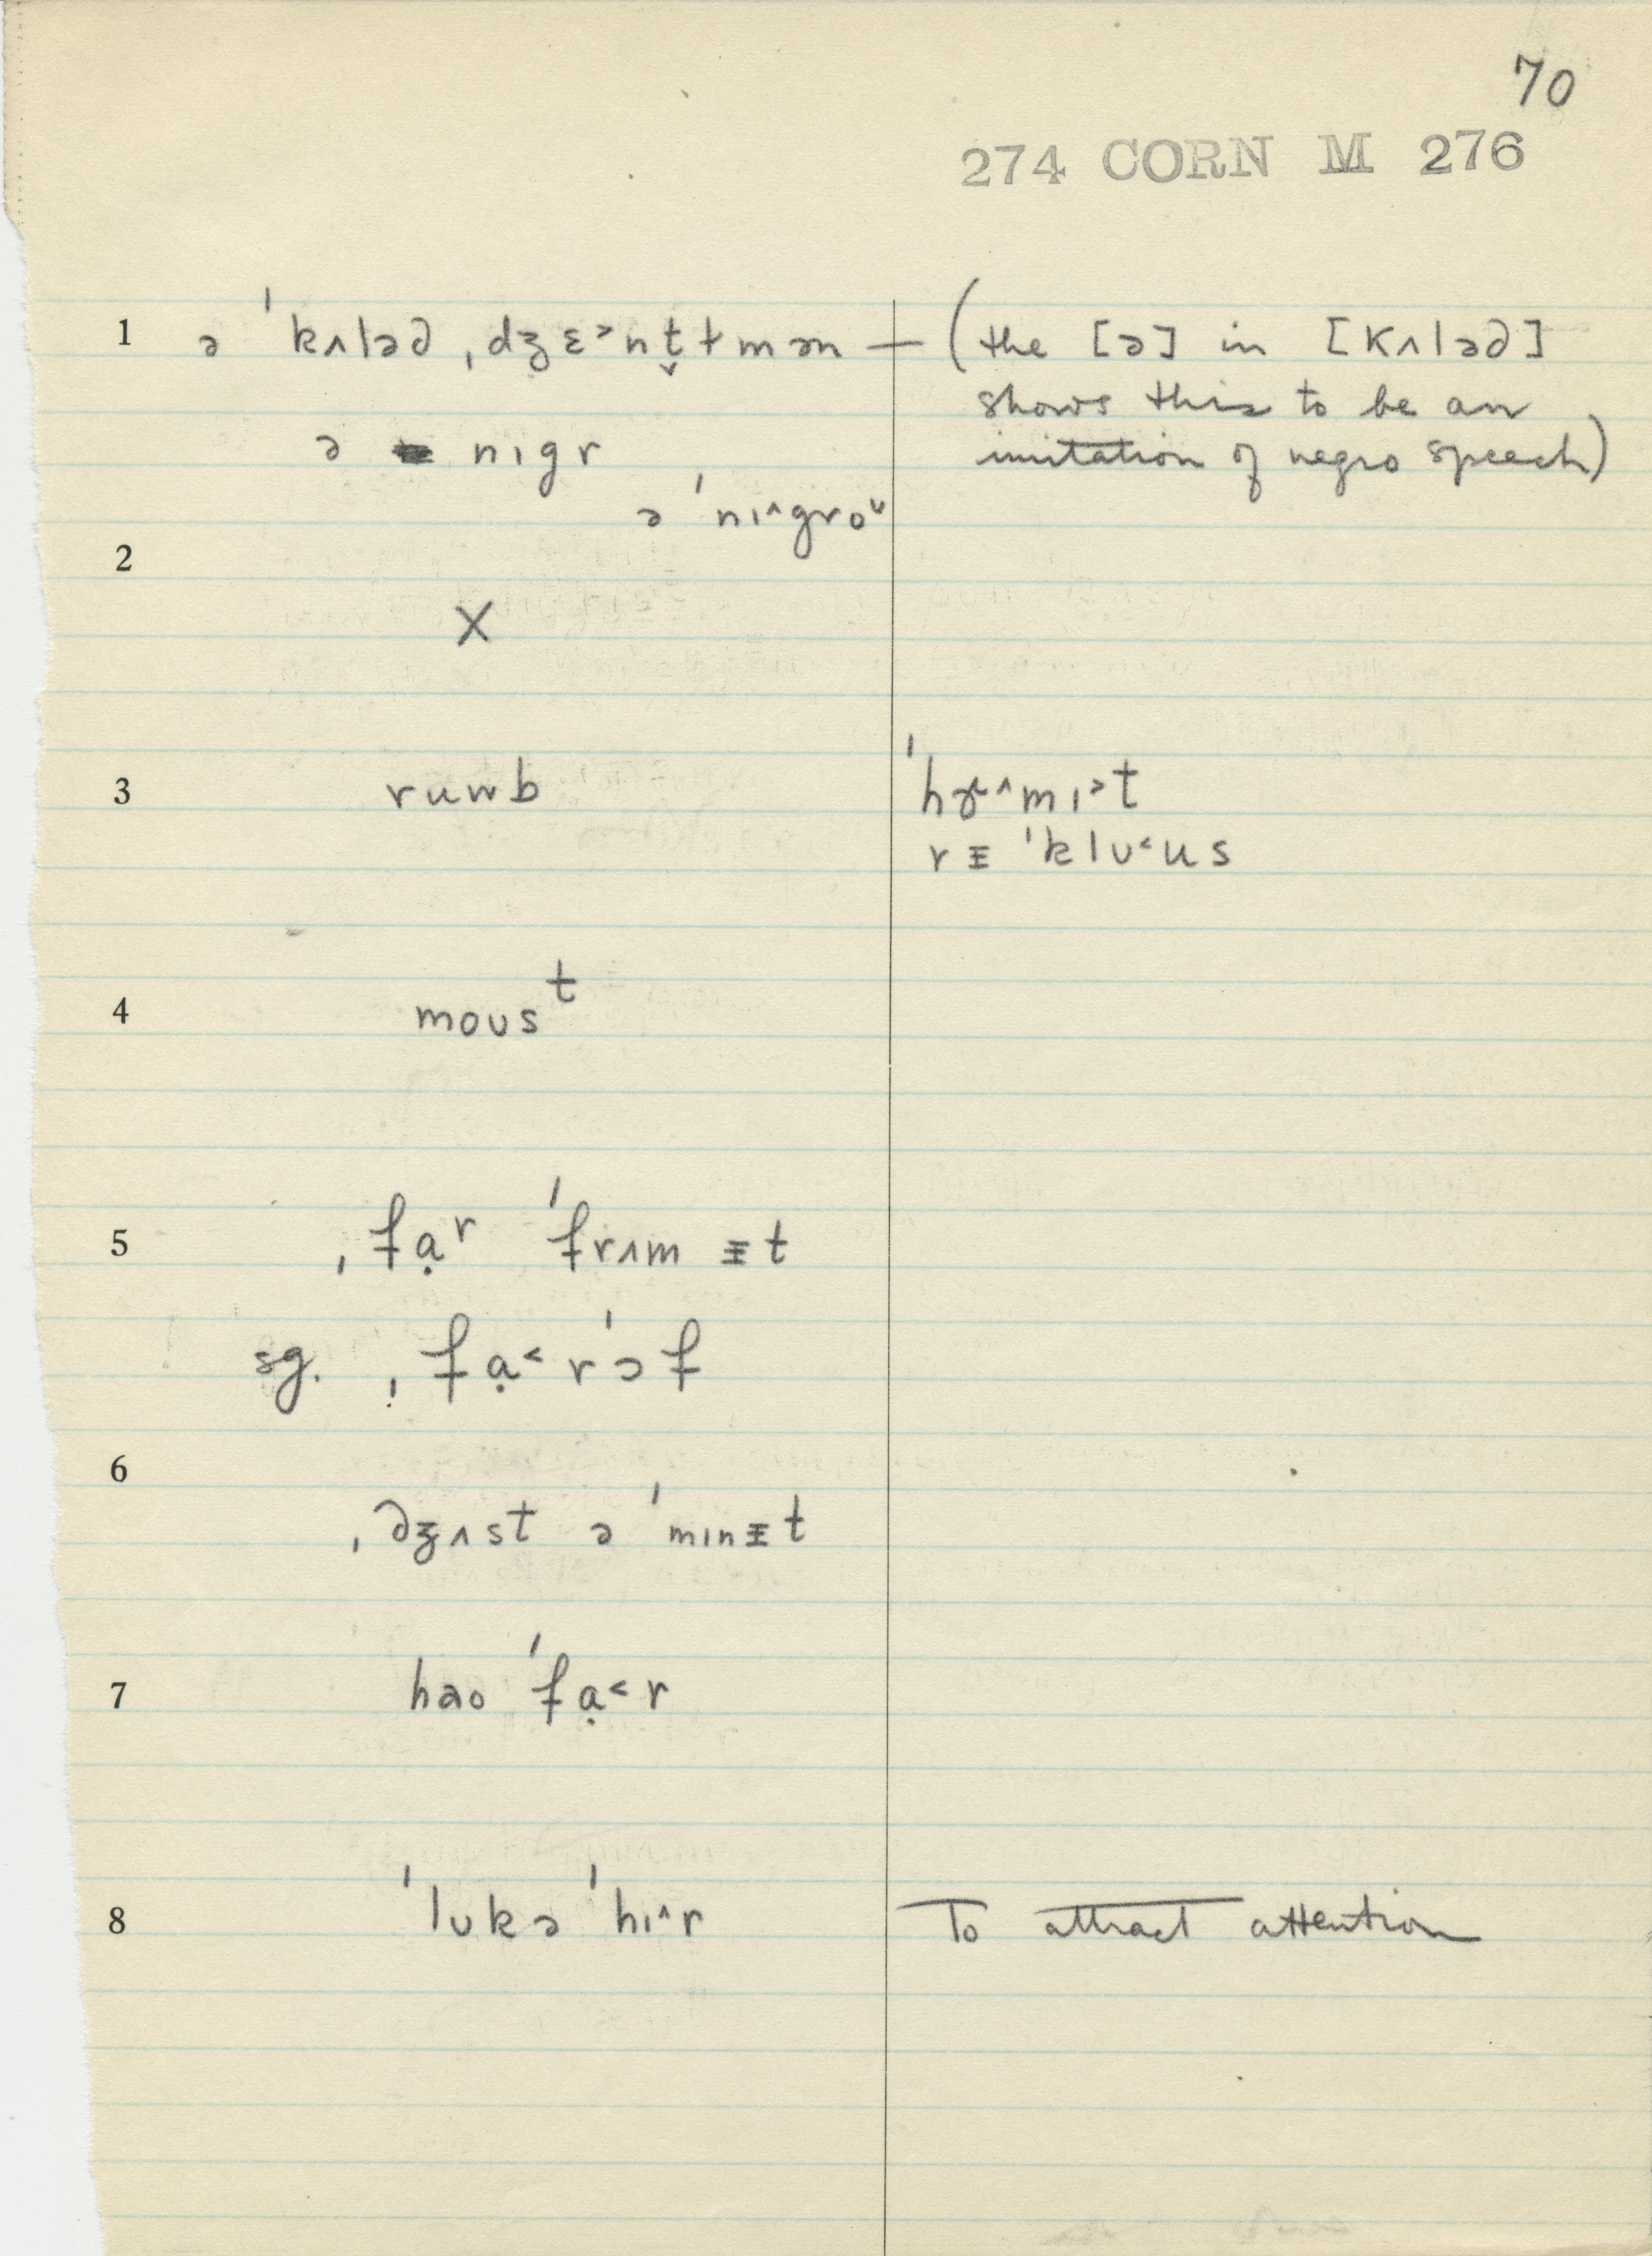 70
274 CORN M 276
1 ə ˈkʌləd ˌdʒɛ˃nt̬ɫmən — (the [ə] in [kʌləd]
shows this to be an
ə nɪgr imitation of negro speech)
ə ˈnɪ^groᵘ
2
X
3 ruwb ˈhɝ^mɪ˃t
rᵻ ˈklʊ˂us
4 moʊsᵗ
5 ˌfɑ̣ʳ ˈfrʌm ᵻt
sg. ˌfɑ̣˂ rˈɔf
6
ˌdʒʌst ə ˈmɪnᵻt
7 hao ˈfɑ̣˂r
8 ˈlʊkə ˈhɪ^r To attract attention